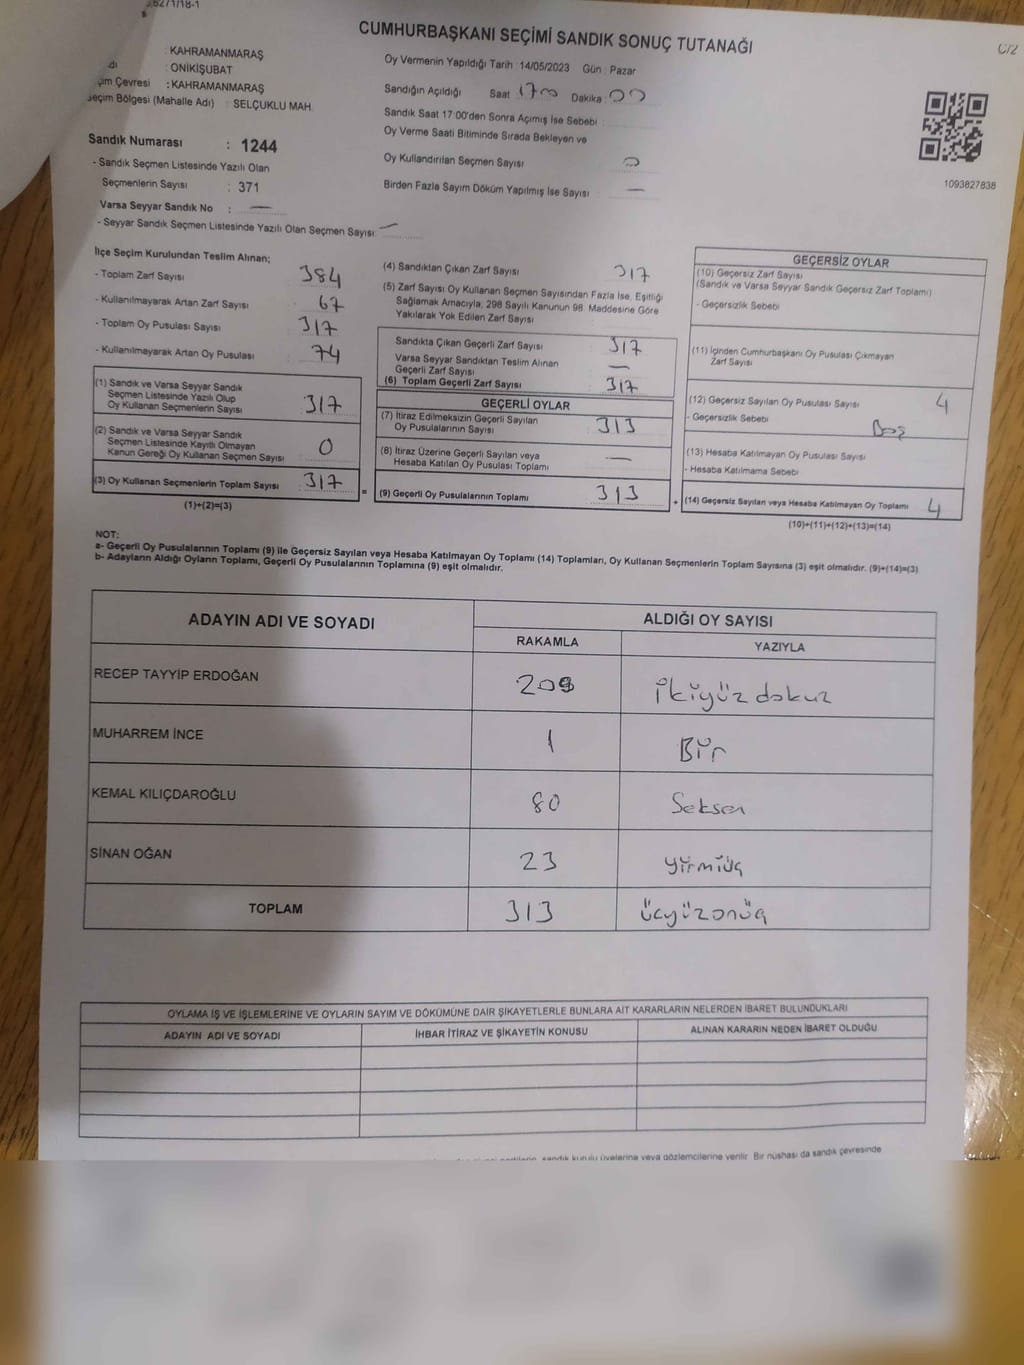 6271/18-1
CUMHURBAŞKANI SEÇİMİ SANDIK SONUÇ TUTANAĞI
C/2
: KAHRAMANMARAŞ
: ONİKİŞUBAT
çim Çevresi : KAHRAMANMARAŞ
Seçim Bölgesi (Mahalle Adı) : SELÇUKLU MAH.
Sandık Numarası : 1244
- Sandık Seçmen Listesinde Yazılı Olan
Seçmenlerin Sayısı : 371
Varsa Seyyar Sandık No : —
- Seyyar Sandık Seçmen Listesinde Yazılı Olan Seçmen Sayısı: —
Oy Vermenin Yapıldığı Tarih : 14/05/2023 Gün : Pazar
Sandığın Açıldığı Saat 17:00 Dakika : 00
Sandık Saat 17:00'den Sonra Açımış İse Sebebi :
Oy Verme Saati Bitiminde Sırada Bekleyen ve
Oy Kullandırılan Seçmen Sayısı : 0
Birden Fazla Sayım Döküm Yapılmış İse Sayısı : —
1093827838
İlçe Seçim Kurulundan Teslim Alınan;
- Toplam Zarf Sayısı : 384
- Kullanılmayarak Artan Zarf Sayısı : 67
- Toplam Oy Pusulası Sayısı : 317
- Kullanılmayarak Artan Oy Pusulası : 74
(1) Sandık ve Varsa Seyyar Sandık
Seçmen Listesinde Yazılı Olup
Oy Kullanan Seçmenlerin Sayısı : 317
(2) Sandık ve Varsa Seyyar Sandık
Seçmen Listesinde Kayıtlı Olmayan
Kanun Gereği Oy Kullanan Seçmen Sayısı : 0
(3) Oy Kullanan Seçmenlerin Toplam Sayısı : 317
(1)+(2)=(3)
(4) Sandıktan Çıkan Zarf Sayısı : 317
(5) Zarf Sayısı Oy Kullanan Seçmen Sayısından Fazla İse, Eşitliği
Sağlamak Amacıyla, 298 Sayılı Kanunun 98. Maddesine Göre
Yakılarak Yok Edilen Zarf Sayısı :
Sandıkta Çıkan Geçerli Zarf Sayısı : 317
Varsa Seyyar Sandıktan Teslim Alınan
Geçerli Zarf Sayısı : —
(6) Toplam Geçerli Zarf Sayısı : 317
GEÇERLİ OYLAR
(7) İtiraz Edilmeksizin Geçerli Sayılan
Oy Pusulalarının Sayısı : 313
(8) İtiraz Üzerine Geçerli Sayılan veya
Hesaba Katılan Oy Pusulası Toplamı : —
= (9) Geçerli Oy Pusulalarının Toplamı : 313
GEÇERSİZ OYLAR
(10) Geçersiz Zarf Sayısı
(Sandık ve Varsa Seyyar Sandık Geçersiz Zarf Toplamı)
- Geçersizlik Sebebi
(11) İçinden Cumhurbaşkanı Oy Pusulası Çıkmayan
Zarf Sayısı
(12) Geçersiz Sayılan Oy Pusulası Sayısı 4
- Geçersizlik Sebebi Boş
(13) Hesaba Katılmayan Oy Pusulası Sayısı
- Hesaba Katılmama Sebebi
+ (14) Geçersiz Sayılan veya Hesaba Katılmayan Oy Toplamı 4
(10)+(11)+(12)+(13)=(14)
NOT:
a- Geçerli Oy Pusulalarının Toplamı (9) ile Geçersiz Sayılan veya Hesaba Katılmayan Oy Toplamı (14) Toplamları, Oy Kullanan Seçmenlerin Toplam Sayısına (3) eşit olmalıdır. (9)+(14)=(3)
b- Adayların Aldığı Oyların Toplamı, Geçerli Oy Pusulalarının Toplamına (9) eşit olmalıdır.
ADAYIN ADI VE SOYADI
ALDIĞI OY SAYISI
RAKAMLA YAZIYLA
RECEP TAYYİP ERDOĞAN 209 İkiyüz dokuz
MUHARREM İNCE 1 Bir
KEMAL KILIÇDAROĞLU 80 Seksen
SİNAN OĞAN 23 yirmiüç
TOPLAM 313 üçyüzonüç
OYLAMA İŞ VE İŞLEMLERİNE VE OYLARIN SAYIM VE DÖKÜMÜNE DAİR ŞİKAYETLERLE BUNLARA AİT KARARLARIN NELERDEN İBARET BULUNDUKLARI
ADAYIN ADI VE SOYADI İHBAR İTİRAZ VE ŞİKAYETİN KONUSU ALINAN KARARIN NEDEN İBARET OLDUĞU
sandık kurulu üyelerine veya gözlemcilerine verilir. Bir nüshası da sandık çevresinde